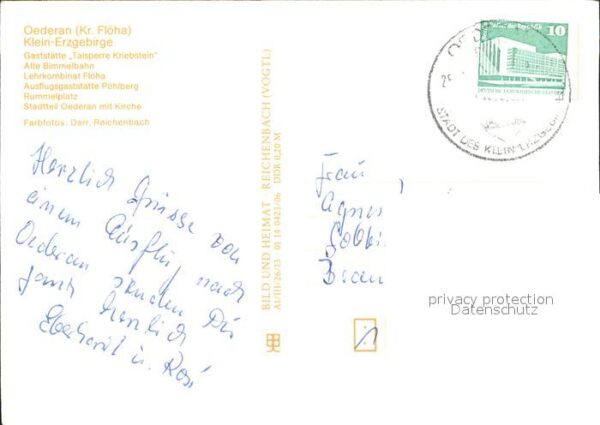 Oederan (Kr. Flöha)
Klein-Erzgebirge
Gaststätte „Talsperre Kriebstein"
Alte Bimmelbahn
Lehrkombinat Flöha
Ausflugsgaststätte Pöhlberg
Rummelplatz
Stadtteil Oederan mit Kirche
Farbfotos: Darr, Reichenbach
Herzlich Grüsse von
einem Ausflug nach
Oederan senden Dir
ganz herzlich
Eberhard u. Rosi
BILD UND HEIMAT REICHENBACH (VOGTL)
A1/III/26/13 01 14 0421/06 DDR 0,20 M
10
STADT DES KLEIN-ERZGEBIRGE
Frau
Agnes
privacy protection
Datenschutz